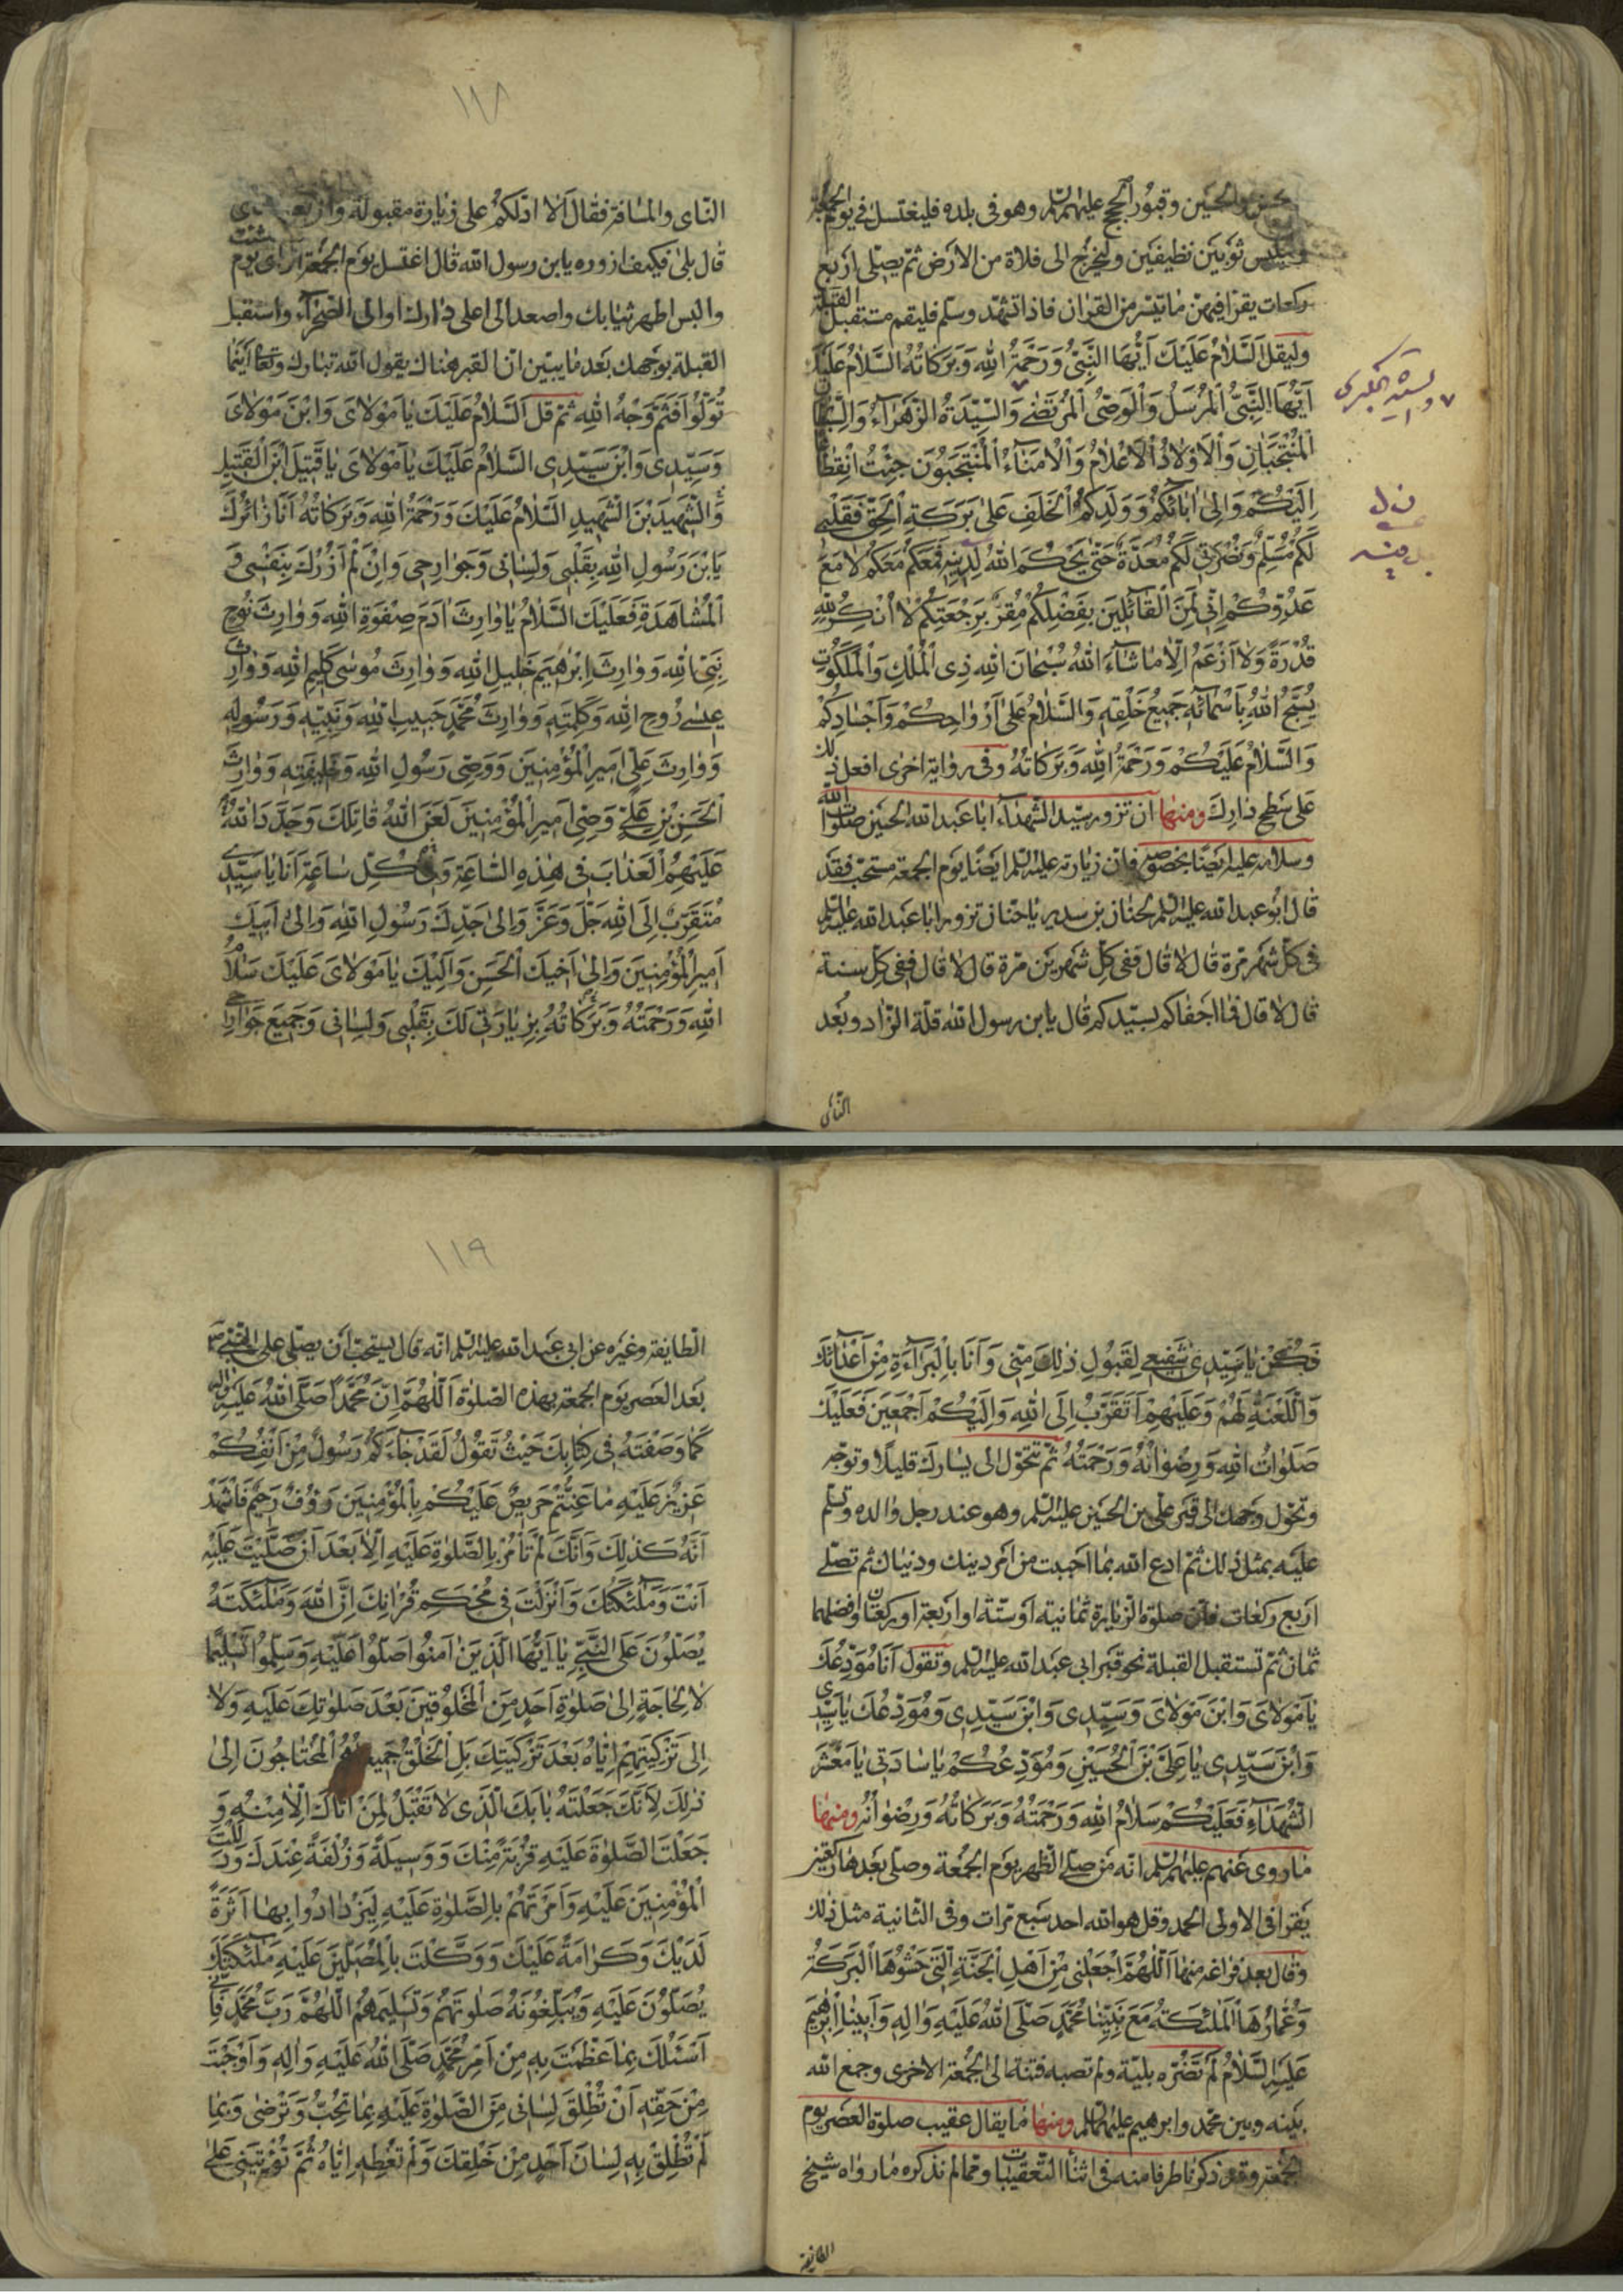 والحسين وقبور الحجج عليهم السلم وهو فى بلده فليغتسل فى يوم الجمعة
وليلبس ثوبين نظيفين وليخرج الى فلاة من الارض ثم يصلى اربع
ركعات يقرا فيهن ما تيسر من القران فاذا تشهد وسلم فليقم مستقبل القبلة
وليقل اَلسَّلامُ عَلَيْكَ اَيُّهَا النَّبِىُّ وَرَحْمَةُ اللهِ وَبَرَكاتُهُ السَّلامُ عَلَيْكَ
اَيُّهَا النَّبِىُّ الْمُرْسَلُ وَالْوَصِىُّ الْمُرْتَضٰى وَالسَّيِّدَةُ الزَّهْرَاءُ وَالسِّبْطانِ
الْمُنْتَجَبانِ وَالْاَوْلادُ الْاَعْلامُ وَالْاُمَناءُ الْمُنْتَجَبُونَ جِئْتُ اِنْقِطاعًا
اِلَيْكُمْ وَاِلىٰ اٰبائِكُمْ وَوَلَدِكُمُ الْخَلَفِ عَلىٰ بَرَكَةِ الْحَقِّ فَقَلْبِى
لَكُمْ مُسَلِّمٌ وَنُصْرَتى لَكُمْ مُعَدَّةٌ حَتّىٰ يَحْكُمَ اللهُ لِدينِهِ فَمَعَكُمْ مَعَكُمْ لا مَعَ
عَدُوِّكُمْ اِنّى لَمِنَ الْقائِلينَ بِفَضْلِكُمْ مُقِرٌّ بِرَجْعَتِكُمْ لا اُنْكِرُ لِلّٰهِ
قُدْرَةً وَلا اَزْعَمُ اِلّا ما شاءَ اللهُ سُبْحانَ اللهِ ذِى الْمُلْكِ وَالْمَلَكُوتِ
يُسَبِّحُ اللهَ بِاَسْمائِهِ جَميعُ خَلْقِهِ وَالسَّلامُ عَلىٰ اَرْواحِكُمْ وَاَجْسادِكُمْ
وَالسَّلامُ عَلَيْكُمْ وَرَحْمَةُ اللهِ وَبَرَكاتُهُ وفى رواية اخرى افعل ذلك
على سطح دارك ومنها ان تزور سيد الشهداء ابا عبد الله الحسين صلوات الله
وسلامه عليه ايضا بخصوصه فان زيارته عليه السلم ايضا يوم الجمعة مستحب فقد
قال ابو عبد الله عليه السلم لحنان بن سدير يا حنان تزور ابا عبد الله عليه السلم
فى كل شهر مرة قال لا قال ففى كل شهرين مرة قال لا قال ففى كل سنة
قال لا قال فما اجفاكم لسيدكم قال يا بن رسول الله قلة الزاد وبعد
الناى
والسيدة الكبرى
ن ل
١١٨
الناى والمسافة فقال الا ادلكم على زيارة مقبولة وان بعد الناى
قال بلى فكيف ازوره يا بن رسول الله قال اغتسل يوم الجمعة او اى يوم شئت
والبس اطهر ثيابك واصعد الى اعلى دارك او الى الصحراء واستقبل
القبلة بوجهك بعد ما يبين ان القبر هناك يقول الله تبارك وتعالى اَيْنَما
تُوَلُّوا فَثَمَّ وَجْهُ اللهِ ثم قل اَلسَّلامُ عَلَيْكَ يا مَوْلاىَ وَابْنَ مَوْلاىَ
وَسَيِّدى وَابْنَ سَيِّدى السَّلامُ عَلَيْكَ يا مَوْلاىَ يا قَتيلَ ابْنَ الْقَتيلِ
وَالشَّهيدَ بْنَ الشَّهيدِ السَّلامُ عَلَيْكَ وَرَحْمَةُ اللهِ وَبَرَكاتُهُ اَنَا زائِرُكَ
يَا بْنَ رَسُولِ اللهِ بِقَلْبى وَلِسانى وَجَوارِحى وَاِنْ لَمْ اَزُرْكَ بِنَفْسى وَ
الْمُشاهَدَةِ فَعَلَيْكَ السَّلامُ يا وارِثَ اٰدَمَ صِفْوَةِ اللهِ وَوارِثَ نُوحٍ
نَبِىِّ اللهِ وَوارِثَ اِبْرٰهيمَ خَليلِ اللهِ وَوارِثَ مُوسٰى كَليمِ اللهِ وَوارِثَ
عيسٰى رُوحِ اللهِ وَكَلِمَتِهِ وَوارِثَ مُحَمَّدٍ حَبيبِ اللهِ وَنَبِيِّهِ وَرَسُولِهِ
وَوارِثَ عَلِىٍّ اَميرِ الْمُؤْمِنينَ وَوَصِىِّ رَسُولِ اللهِ وَخَليفَتِهِ وَوارِثَ
الْحَسَنِ بْنِ عَلِىٍّ وَصِىِّ اَميرِ الْمُؤْمِنينَ لَعَنَ اللهُ قاتِلَكَ وَجَدَّدَ اللهُ
عَلَيْهِمُ الْعَذابَ فى هٰذِهِ السّاعَةِ وَفى كُلِّ ساعَةٍ اَنَا يا سَيِّدى
مُتَقَرِّبٌ اِلَى اللهِ جَلَّ وَعَزَّ وَاِلىٰ جَدِّكَ رَسُولِ اللهِ وَاِلىٰ اَبيكَ
اَميرِ الْمُؤْمِنينَ وَاِلىٰ اَخيكَ الْحَسَنِ وَاِلَيْكَ يا مَوْلاىَ عَلَيْكَ سَلامُ
اللهِ وَرَحْمَتُهُ وَبَرَكاتُهُ بِزِيارَتى لَكَ بِقَلْبى وَلِسانى وَجَميعِ جَوارِحى
فَكُنْ يا سَيِّدى شَفيعى لِقَبُولِ ذٰلِكَ مِنّى وَاَنَا بِالْبَراءَةِ مِنْ اَعْدائِكَ
وَاللَّعْنَةِ لَهُمْ وَعَلَيْهِمْ اَتَقَرَّبُ اِلَى اللهِ وَاِلَيْكُمْ اَجْمَعينَ فَعَلَيْكَ
صَلَواتُ اللهِ وَرِضْوانُهُ وَرَحْمَتُهُ ثم تتحول الى يسارك قليلا وتوجه
وتحول وجهك الى قبر على بن الحسين عليه السلم وهو عند رجل والده وتسلم
عليه بمثل ذلك ثم ادع الله بما احببت من امر دينك ودنياك ثم تصلى
اربع ركعات فان صلوة الزيارة ثمانية او ستة او اربعة او ركعتان وافضلها
ثمان ثم تستقبل القبلة نحو قبر ابى عبد الله عليه السلم وتقول اَنَا مُوَدِّعُكَ
يا مَوْلاىَ وَابْنَ مَوْلاىَ وَسَيِّدى وَابْنَ سَيِّدى وَمُوَدِّعُكَ يا سَيِّدى
وَابْنَ سَيِّدى يا عَلِىَّ بْنَ الْحُسَيْنِ وَمُوَدِّعُكُمْ يا ساداتى يا مَعْشَرَ
الشُّهَداءِ فَعَلَيْكُمْ سَلامُ اللهِ وَرَحْمَتُهُ وَبَرَكاتُهُ وَرِضْوانُهُ ومنها
ما روى عنهم عليهم السلم انه من صلى الظهر يوم الجمعة وصلى بعدها ركعتين
يقرا فى الاولى الحمد وقل هو الله احد سبع مرات وفى الثانية مثل ذلك
وقال بعد فراغه منها اَللّٰهُمَّ اجْعَلْنى مِنْ اَهْلِ الْجَنَّةِ الَّتى حَشْوُهَا الْبَرَكَةُ
وَعُمّارُهَا الْمَلٰئِكَةُ مَعَ نَبِيِّنا مُحَمَّدٍ صَلَّى اللهُ عَلَيْهِ وَاٰلِهِ وَاَبينا اِبْرٰهيمَ
عَلَيْهِ السَّلامُ لم تضره بلية ولم تصبه فتنة الى الجمعة الاخرى وجمع الله
بينه وبين محمد وابرهيم عليهما السلم ومنها ما يقال عقيب صلوة العصر يوم
الجمعة وقد ذكرنا طرفا منه فى اثناء التعقيبات ومما لم نذكره ما رواه شيخ
الطايفة
١١٩
الطايفة وغيره عن ابى عبد الله عليه السلم انه قال يستحب ان يصلى على النبى
بعد العصر يوم الجمعة بهذه الصلوة اَللّٰهُمَّ اِنَّ مُحَمَّدًا صَلَّى اللهُ عَلَيْهِ وَاٰلِهِ
كَما وَصَفْتَهُ فى كِتابِكَ حَيْثُ تَقُولُ لَقَدْ جاءَكُمْ رَسُولٌ مِنْ اَنْفُسِكُمْ
عَزيزٌ عَلَيْهِ ما عَنِتُّمْ حَريصٌ عَلَيْكُمْ بِالْمُؤْمِنينَ رَؤُفٌ رَحيمٌ فَاَشْهَدُ
اَنَّهُ كَذٰلِكَ وَاَنَّكَ لَمْ تَأْمُرْ بِالصَّلٰوةِ عَلَيْهِ اِلّا بَعْدَ اَنْ صَلَّيْتَ عَلَيْهِ
اَنْتَ وَمَلٰئِكَتُكَ وَاَنْزَلْتَ فى مُحْكَمِ قُرْاٰنِكَ اِنَّ اللهَ وَمَلٰئِكَتَهُ
يُصَلُّونَ عَلَى النَّبِىِّ يا اَيُّهَا الَّذينَ اٰمَنُوا صَلُّوا عَلَيْهِ وَسَلِّمُوا تَسْليمًا
لا لِحاجَةٍ اِلىٰ صَلٰوةِ اَحَدٍ مِنَ الْمَخْلُوقينَ بَعْدَ صَلَوٰتِكَ عَلَيْهِ وَلا
اِلىٰ تَزْكِيَتِهِمْ اِيّاهُ بَعْدَ تَزْكِيَتِكَ بَلِ الْخَلْقُ جَميعًا هُمُ الْمُحْتاجُونَ اِلىٰ
ذٰلِكَ لِاَنَّكَ جَعَلْتَهُ بابَكَ الَّذى لا تَقْبَلُ لِمَنْ اَتاكَ اِلّا مِنْهُ وَ
جَعَلْتَ الصَّلٰوةَ عَلَيْهِ قُرْبَةً مِنْكَ وَوَسيلَةً وَزُلْفَةً عِنْدَكَ وَدَلَلْتَ
الْمُؤْمِنينَ عَلَيْهِ وَاَمَرْتَهُمْ بِالصَّلٰوةِ عَلَيْهِ لِيَزْدادُوا بِها اَثَرَةً
لَدَيْكَ وَكَرامَةً عَلَيْكَ وَوَكَّلْتَ بِالْمُصَلّينَ عَلَيْهِ مَلٰئِكَتَكَ
يُصَلُّونَ عَلَيْهِ وَيُبَلِّغُونَهُ صَلٰوتَهُمْ وَتَسْليمَهُمْ اَللّٰهُمَّ رَبَّ مُحَمَّدٍ فَاِنّى
اَسْئَلُكَ بِما عَظَّمْتَ بِهِ مِنْ اَمْرِ مُحَمَّدٍ صَلَّى اللهُ عَلَيْهِ وَاٰلِهِ وَاَوْجَبْتَ
مِنْ حَقِّهِ اَنْ تُطْلِقَ لِسانى مِنَ الصَّلٰوةِ عَلَيْهِ بِما تُحِبُّ وَتَرْضٰى وَبِما
لَمْ تُطْلِقْ بِهِ لِسانَ اَحَدٍ مِنْ خَلْقِكَ وَلَمْ تُعْطِهِ اِيّاهُ ثُمَّ تُؤْتِيَنى عَلىٰ